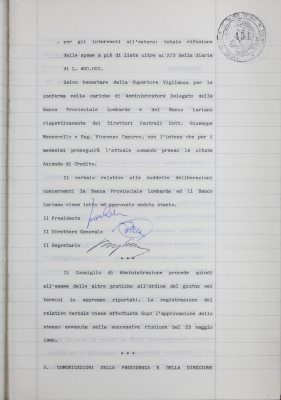 . per gli interventi all'estero: totale rifusione
delle spese a piè di lista oltre ai 2/3 della diaria
di L. 400.000.
Salvo benestare della Superiore Vigilanza per la
conferma nelle cariche di Amministratore Delegato della
Banca Provinciale Lombarda e del Banco Lariano
rispettivamente dei Direttori Centrali Dott. Giuseppe
e Rag. Vincenzo Capurro, con l'intesa che per i
medesimi proseguirà l'attuale comando presso le citate
Aziende di Credito.
Il verbale relativo alle suddette deliberazioni
concernenti la Banca Provinciale Lombarda ed il Banco
Lariano viene letto ed approvato seduta stante.
Il Presidente
Il Direttore Generale
Il Segretario
* * *
Il Consiglio di Amministrazione procede quindi
all'esame delle altre pratiche all'ordine del giorno nei
termini in appresso riportati. La registrazione del
relativo verbale viene effettuata dopo l'approvazione dello
stesso avvenuta nella successiva riunione del 23 maggio
1980.
* * *
2. COMUNICAZIONI DELLA PRESIDENZA E DELLA DIREZIONE